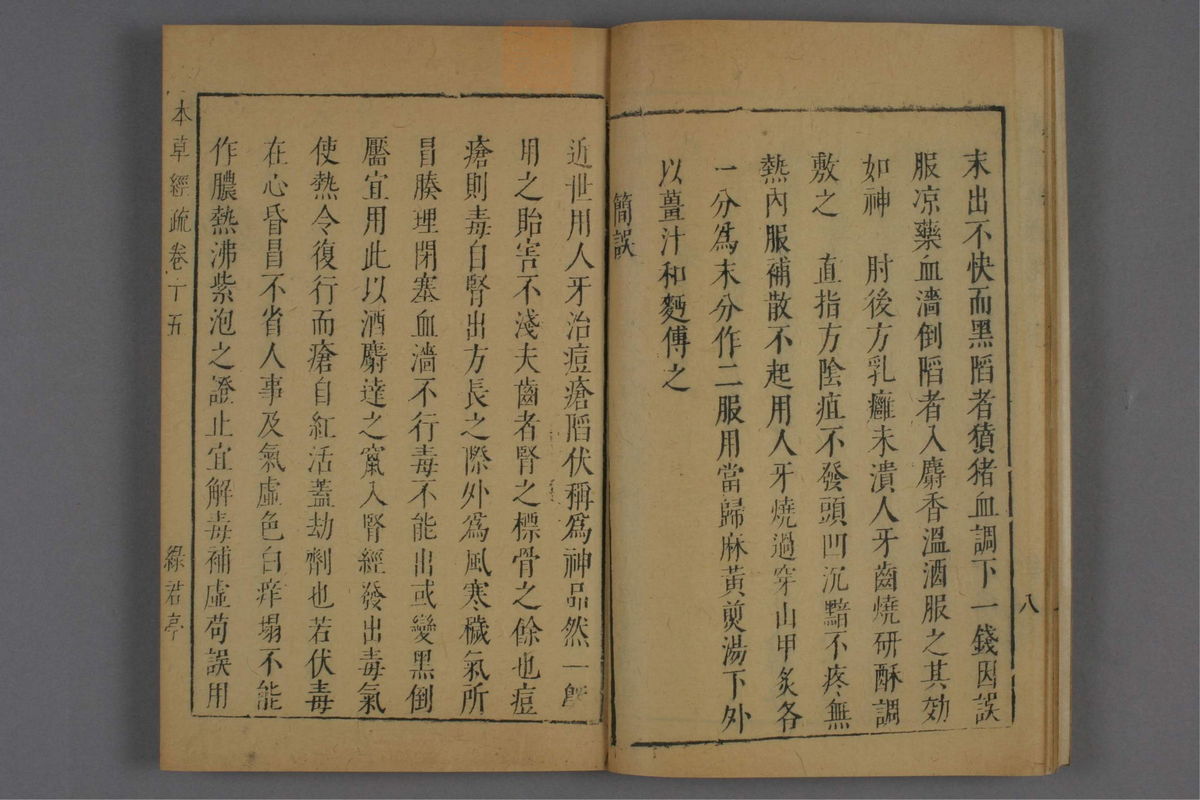 末出不快而黑陷者獖猪血調下一錢因誤
服凉藥血濇倒陷者入麝香溫酒服之其効
如神　肘後方乳癰未潰人牙齒燒研酥調
敷之　直指方陰疽不發頭凹沉黯不疼無
熱內服補散不起用人牙燒過穿山甲炙各
一分爲末分作二服用當歸麻黃煎湯下外
以薑汁和麪傅之
簡誤
八
近世用人牙治痘瘡陷伏稱爲神品然一槩
用之貽害不淺夫齒者腎之標骨之餘也痘
瘡則毒自腎出方長之際外爲風寒穢氣所
冒腠理閉塞血濇不行毒不能出或變黑倒
靨宜用此以酒麝達之竄入腎經發出毒氣
使熱令復行而瘡自紅活蓋劫劑也若伏毒
在心昏冒不省人事及氣虛色白痒塌不能
作膿熱沸紫泡之證止宜解毒補虛苟誤用
本草經疏卷十五
綠君亭